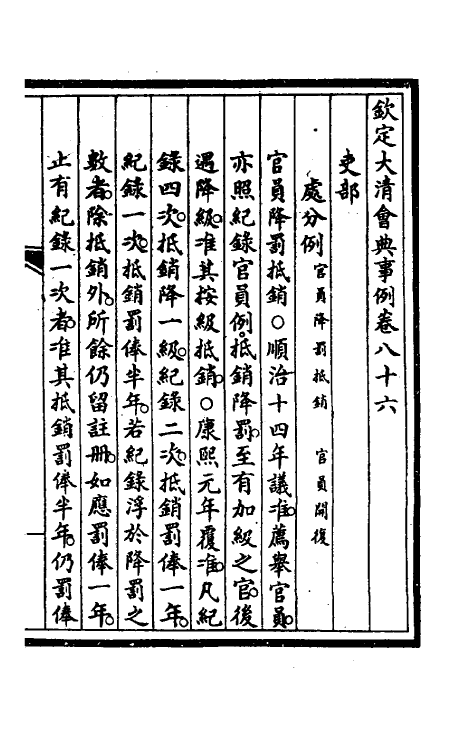 欽定大清會典事例卷八十六
吏部
處分例 官員降罰抵銷 官員開復
官員降罰抵銷○順治十四年議准薦舉官員。
亦照紀錄官員例。抵銷降罰。至有加級之官。後
遇降級。准其按級抵銷。○康熙元年覆准。凡紀
錄四次。抵銷降一級。紀錄二次。抵銷罰俸一年。
紀錄一次。抵銷罰俸半年。若紀錄浮於降罰之
數者。除抵銷外。所餘仍留註冊。如應罰俸一年。
止有紀錄一次者。准其抵銷罰俸半年。仍罰俸